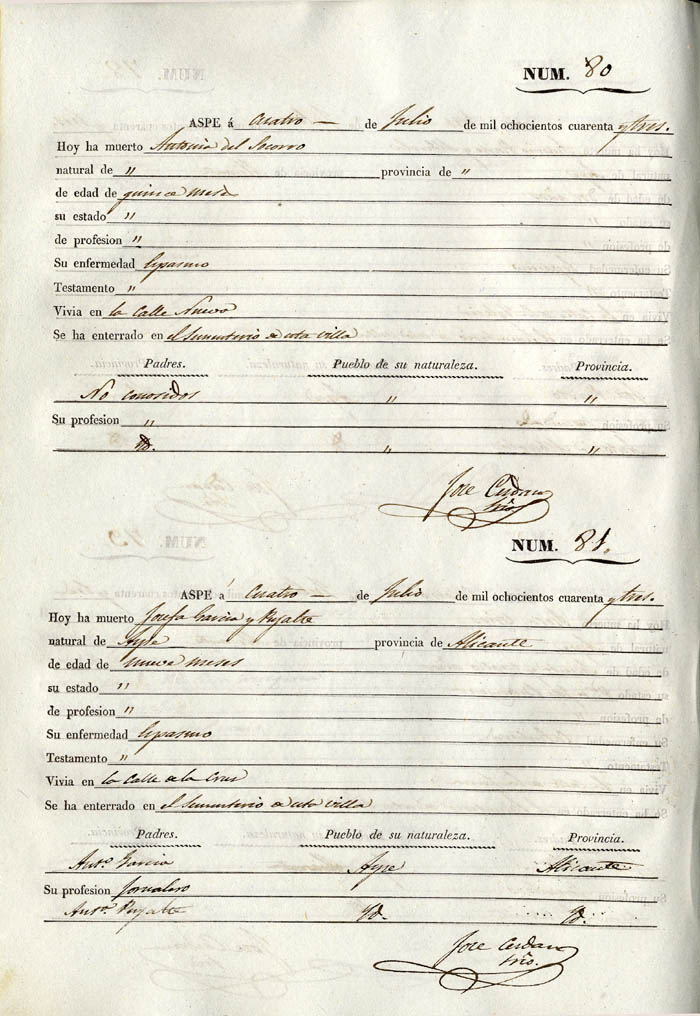 NUM. 80
ASPE á Cuatro — de Julio de mil ochocientos cuarenta y tres.
Hoy ha muerto Antonia del Socorro
natural de " provincia de "
de edad de quince meses
su estado "
de profesion "
Su enfermedad Espasmo
Testamento "
Vivia en la Calle Nueva
Se ha enterrado en el Sementerio de esta villa
Padres. Pueblo de su naturaleza. Provincia.
No conosidos " "
Su profesion "
Yd. " "
Jose Cerdan
NUM. 81.
ASPE á Cuatro — de Julio de mil ochocientos cuarenta y tres.
Hoy ha muerto Josefa Garcia y
natural de Aspe provincia de Alicante
de edad de nueve meses
su estado "
de profesion "
Su enfermedad Espasmo
Testamento "
Vivia en la Calle de la Cruz
Se ha enterrado en el Sementerio de esta villa
Padres. Pueblo de su naturaleza. Provincia.
Anto. Garcia Aspe Alicante
Su profesion Jornalero
Anta. Yd. Yd.
Jose Cerdan